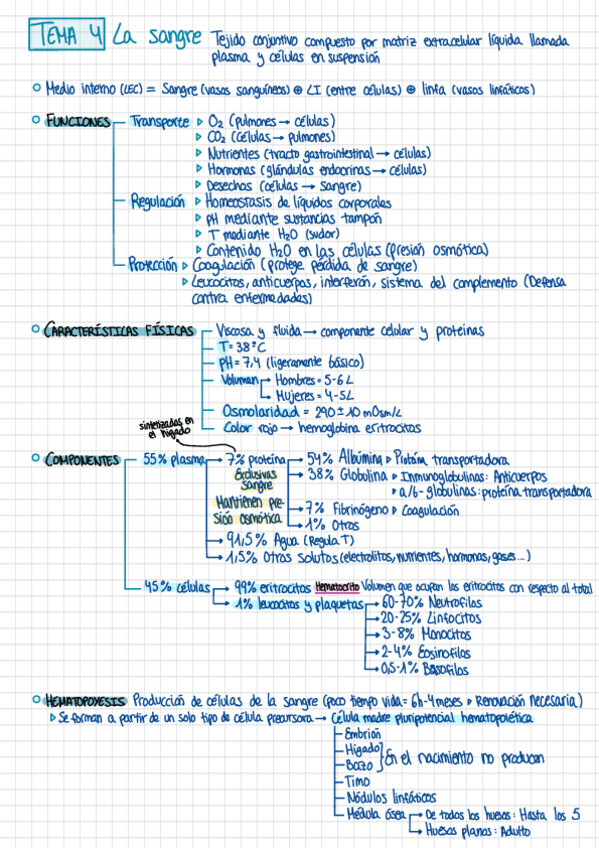 TEMA 4 La sangre Tejido conjuntivo compuesto por matriz extracelular líquida llamada
plasma y células en suspensión
Medio interno (LEC) = Sangre (vasos sanguíneos) ⊕ LI (entre células) ⊕ linfa (vasos linfáticos)
FUNCIONES Transporte ▹ O2 (pulmones → células)
▹ CO2 (células → pulmones)
▹ Nutrientes (tracto gastrointestinal → células)
▹ Hormonas (glándulas endocrinas → células)
▹ Desechos (células → sangre)
Regulación ▹ Homeostasis de líquidos corporales
▹ pH mediante sustancias tampón
▹ T mediante H2O (sudor)
▹ Contenido H2O en las células (presión osmótica)
Protección ▹ Coagulación (protege pérdida de sangre)
▹ Leucocitos, anticuerpos, interferón, sistema del complemento (Defensa
contra enfermedades)
CARACTERÍSTICAS FÍSICAS Viscosa y fluida → componente celular y proteinas
T = 38°C
pH = 7,4 (ligeramente básico)
Volumen → Hombres = 5-6 L
→ Mujeres = 4-5L
Osmolaridad = 290 ± 10 mOsm/L
Color rojo → hemoglobina eritrocitos
sintetizadas en
el hígado
COMPONENTES 55% plasma → 7% proteína → 54% Albúmina ▹ Proteína transportadora
Exclusivas
sangre
Mantienen pre-
sión osmótica
→ 38% Globulina ▹ Inmunoglobulinas: Anticuerpos
▹ α/β-globulinas: proteína transportadora
→ 7% Fibrinógeno ▹ Coagulación
→ 1% Otros
→ 91,5% Agua (Regula T)
→ 1,5% Otros solutos (electrolitos, nutrientes, hormonas, gases...)
45% células → 99% eritrocitos Hematocrito Volumen que ocupan los eritrocitos con respecto al total
→ 1% leucocitos y plaquetas → 60-70% Neutrófilos
→ 20-25% Linfocitos
→ 3-8% Monocitos
→ 2-4% Eosinófilos
→ 0,5-1% Basófilos
HEMATOPOYESIS Producción de células de la sangre (poco tiempo vida = 6h-4meses ▹ Renovación necesaria)
▹ Se forman a partir de un solo tipo de célula precursora → Célula madre pluripotencial hematopoiética
Embrión
Hígado
Bazo } En el nacimiento no producen
Timo
Nódulos linfáticos
Médula ósea → De todos los huesos: Hasta los 5
→ Huesos planos: Adulto